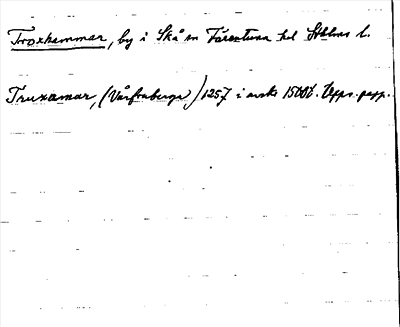 Troxhammar, by i Skå sn Färentuna hd Sthlms l.
Truxamar, (Vårfruberga) 1257 i avskr. 1500t. Upps. papp.